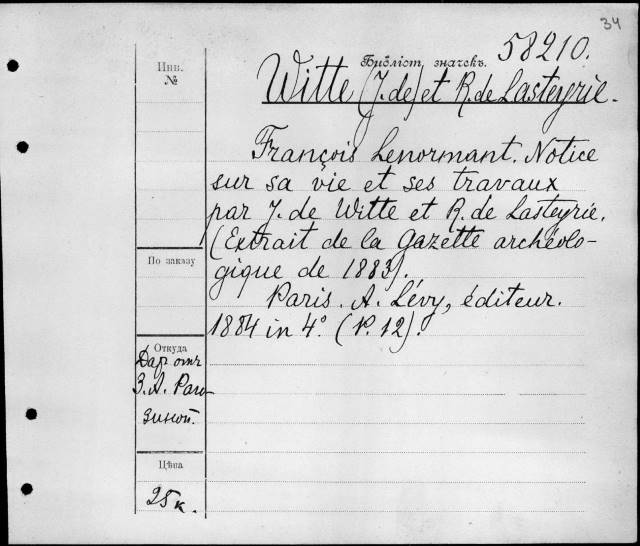 34
58210.
Инв.
№
Библіот. значекъ.
Witte (J. de) et R. de Lasteyrie.
François Lenormant. Notice
sur sa vie et ses travaux
par J. de Witte et R. de Lasteyrie.
(Extrait de la Gazette archéolo-
gique de 1883).
По заказу
Paris. A. Lévy, éditeur.
1884 in 4°. (P. 12).
Откуда
Даръ отъ
З. А. Раго-
зиной.
Цѣна
25 к.